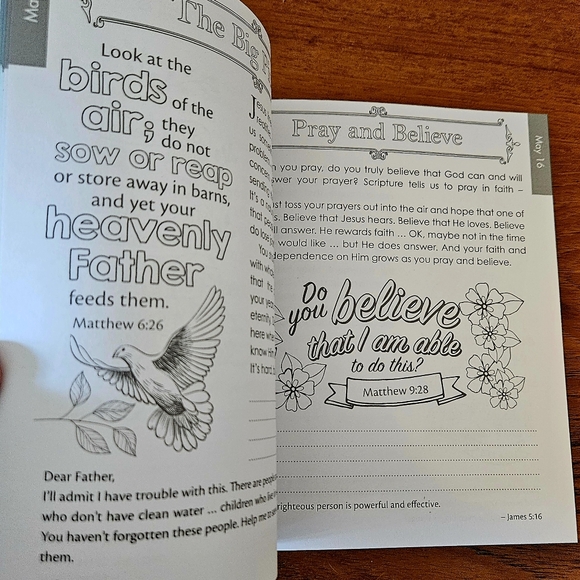 Ma
The Big
Look at the
birds of the
air; they
do not
sow or reap
or store away in barns,
and yet your
heavenly
Father
feeds them.
Matthew 6:26
Dear Father,
I'll admit I have trouble with this. There are people
who don't have clean water ... children who live
You haven't forgotten these people. Help me to
them.
us
that
do
You
with
that the
your
eternity
here
know
It's
May 16
Pray and Believe
you pray, do you truly believe that God can and will
your prayer? Scripture tells us to pray in faith –
toss your prayers out into the air and hope that one of
Believe that Jesus hears. Believe that He loves. Believe
answer. He rewards faith ... OK, maybe not in the time
would like ... but He does answer. And your faith and
dependence on Him grows as you pray and believe.
Do
you believe
that I am able
to do this?
Matthew 9:28
righteous person is powerful and effective.
– James 5:16